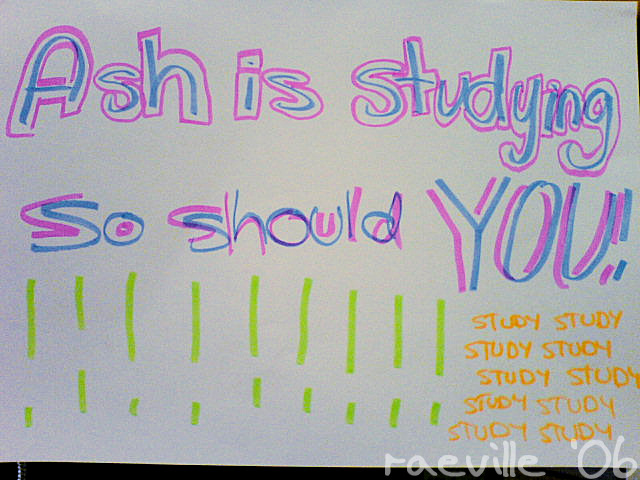 Ash is studying
So should YOU!
! ! ! ! ! ! ! ! !
STUDY STUDY
STUDY STUDY
STUDY STUDY
STUDY STUDY
STUDY STUDY
raeville '06